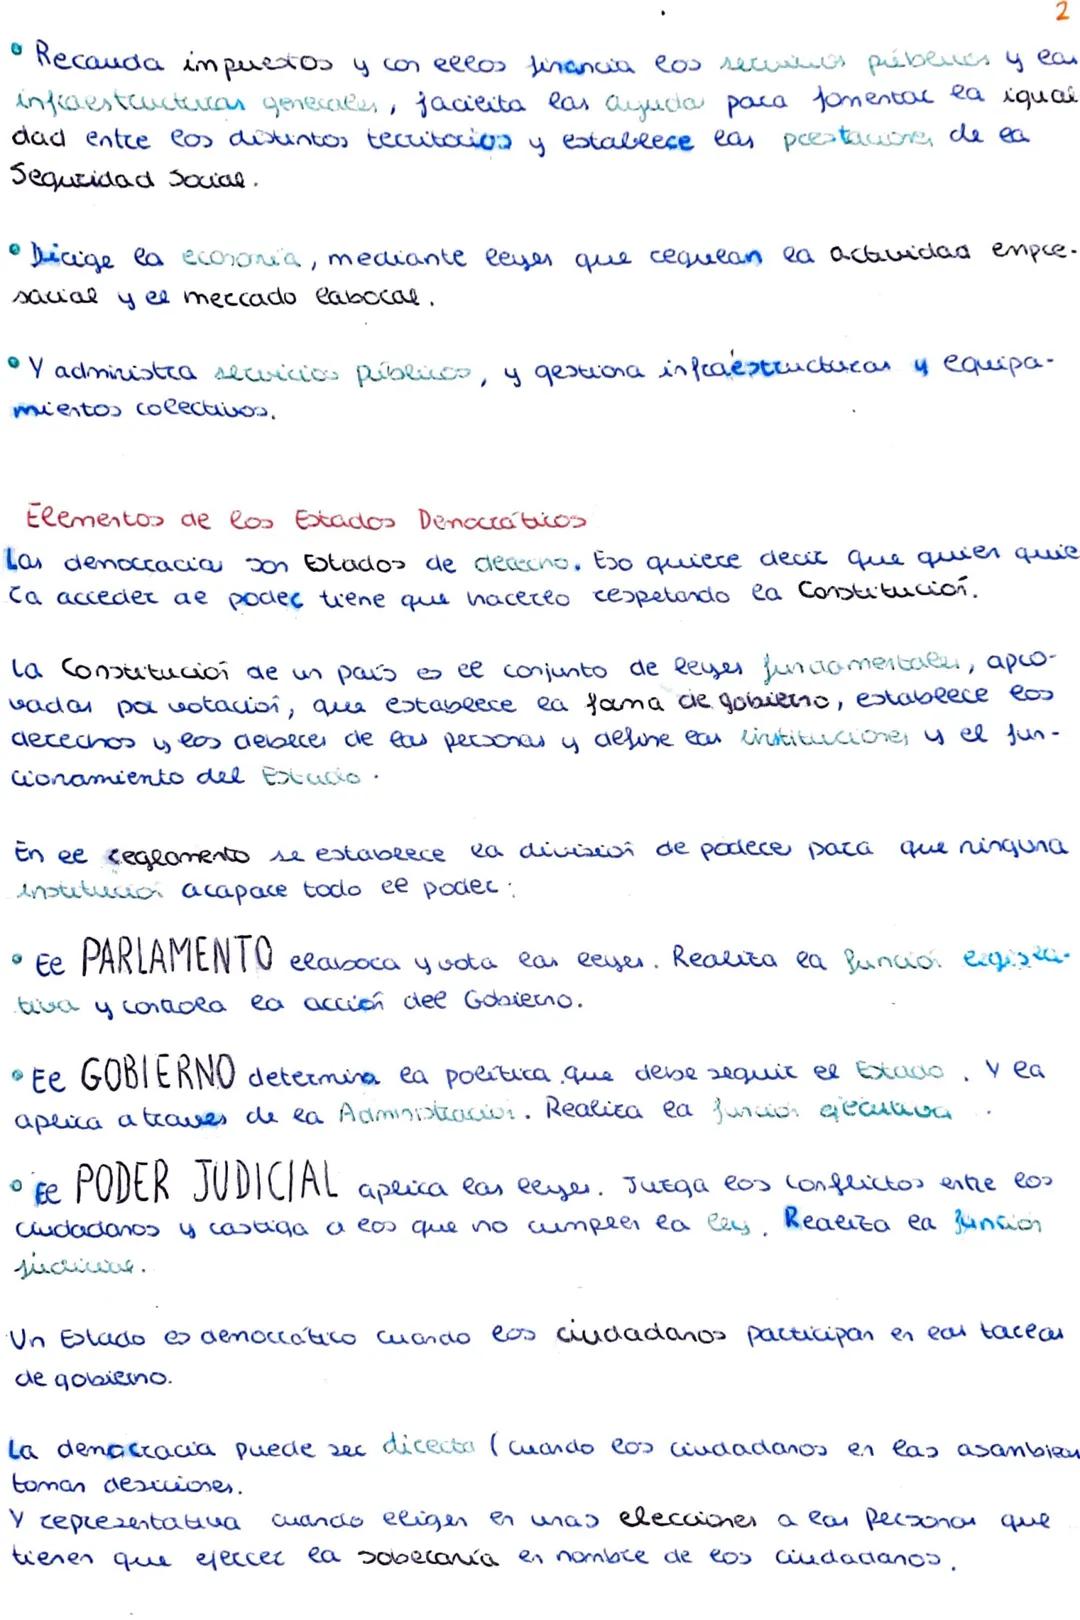 2
• Recauda impuestos y con ellos financia los servicios públicos y las
infraestructuras generales, facilita las ayudas para fomentar la igual
dad entre los distintos territorios y establece las prestaciones de la
Seguridad Social.
• Dirige la economía, mediante leyes que regulan la actividad empre-
sarial y el mercado laboral.
• Y administra servicios públicos, y gestiona infraestructuras y equipa-
mientos colectivos.
Elementos de los Estados Democráticos
Las democracias son Estados de derecho. Eso quiere decir que quien quie
ra acceder al poder tiene que hacerlo respetando la Constitución.
La Constitución de un país es el conjunto de leyes fundamentales, apro-
vadas por votación, que establece la forma de gobierno, establece los
derechos y los deberes de las personas y define las instituciones y el fun-
cionamiento del Estado.
En el reglamento se establece la división de poderes para que ninguna
institución acapare todo el poder:
• El PARLAMENTO elabora y vota las leyes. Realiza la función legisla-
tiva y controla la acción del Gobierno.
• El GOBIERNO determina la política que debe seguir el Estado. Y la
aplica a traves de la Administración. Realiza la función ejecutiva.
• El PODER JUDICIAL aplica las leyes. Juzga los conflictos entre los
ciudadanos y castiga a los que no cumplen la ley. Realiza la función
judicial.
Un Estado es democrático cuando los ciudadanos participan en las tareas
de gobierno.
La democracia puede ser directa (cuando los ciudadanos en las asambleas
toman desiciones.
Y representativa cuando eligen en unas elecciones a las personas que
tienen que ejercer la soberanía en nombre de los ciudadanos.